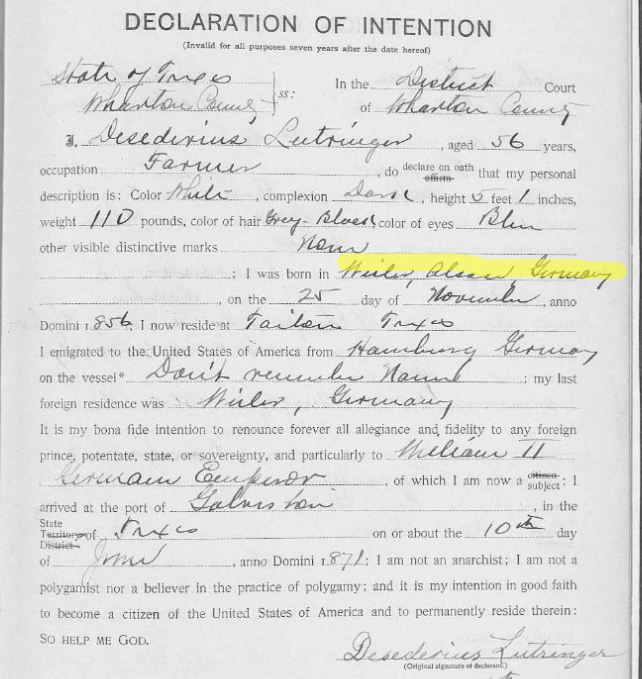 DECLARATION OF INTENTION
(Invalid for all purposes seven years after the date hereof)
State of Texas In the District Court
Wharton County ss: of Wharton County
I, Desederius Leitringer, aged 56 years,
occupation Farmer, do declare on oath affirm that my personal
description is: Color White, complexion Dark, height 5 feet 1 inches,
weight 110 pounds, color of hair Grey-, color of eyes Blue
other visible distinctive marks None
; I was born in Germany
, on the 25 day of November, anno
Domini 1856. I now reside at Texas
I emigrated to the United States of America from Hamburg Germany
on the vessel* Don't remember Name; my last
foreign residence was Germany
It is my bona fide intention to renounce forever all allegiance and fidelity to any foreign
prince, potentate, state, or sovereignty, and particularly to William II
German Emperor, of which I am now a citizen subject; I
arrived at the port of Galveston, in the
State Territory District of Texas on or about the 10th day
of June, anno Domini 1871; I am not an anarchist; I am not a
polygamist nor a believer in the practice of polygamy; and it is my intention in good faith
to become a citizen of the United States of America and to permanently reside therein:
SO HELP ME GOD.
Desederius Litringer
(Original signature of declarant)